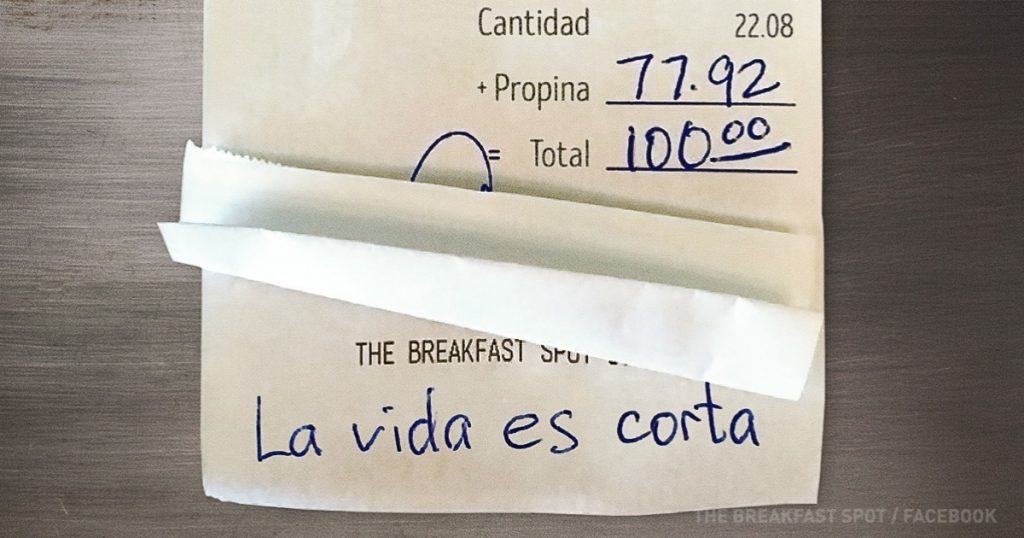 Cantidad 22.08
+ Propina 77.92
= Total 100.00
THE BREAKFAST SPOT
La vida es corta
THE BREAKFAST SPOT / FACEBOOK